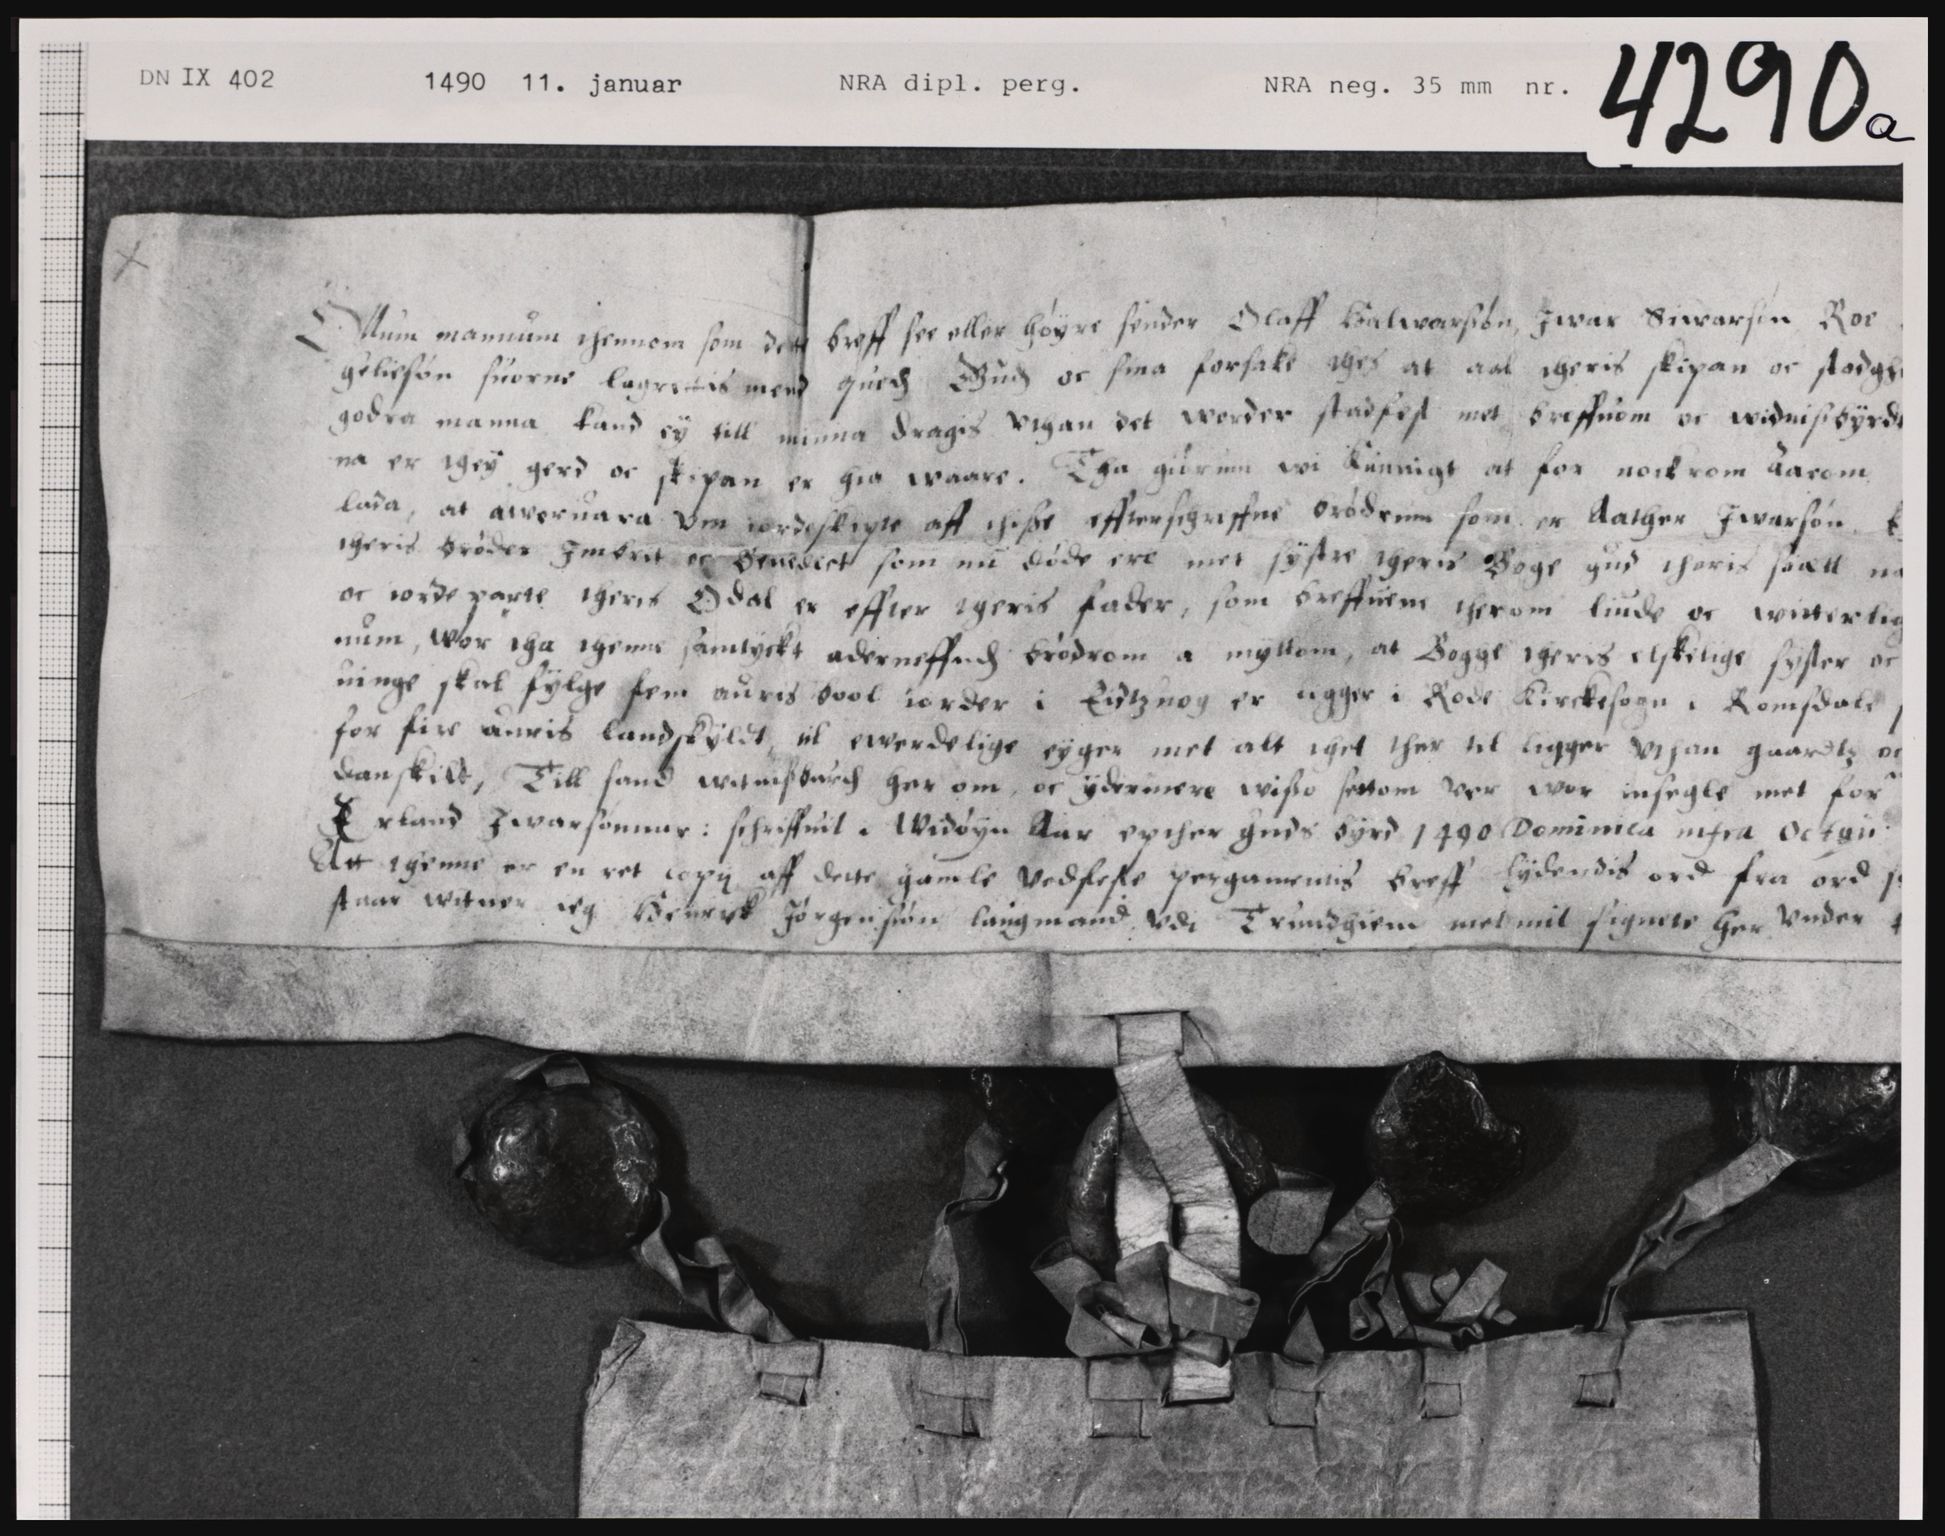 DN IX 402 1490 11. januar NRA dipl. perg. NRA neg. 35 mm nr. 4290a
Ollum mannum thennom som dette breff see eller høyre sender Olaff Halwarsøn, Jwar Siwarsøn Roe
geliesøn suorne lagrettis mend quedh Gudh oc sina forsake thes at aal theris skipan oc stodghe
godra manna kand ey till minna dragis vthan det worder stadfest met breffuom oc widnisbyrdt
na er they gerd oc skipan er hia waare. Tha giørum wi kunnigt at for nockrom aarom
lada, at awerwara vm iordeskipte aff thesse effterschreffne brødrum som er Aather Jwarsøn
theris brøder Imbrit oc Benedict som nu døde ere met systre theris Boge gud theris siæll na
oc iorde parte theris Odal er effter theris fader, som breffuene therom liude oc witterlig
num, wor tha thenne samtyckt aderneffndh brødrom a myllom, at Bogge theris elskelige syster oc
uinge skal fylge fem auris bool iorder i Eistznog er ligger i Rode Kirckesogn i Romsdale
for fire auris landskyldt, til ewerdelige eyger met alt thet ther til ligger vthan gaardtz oc
danskilt, Till sand witnisburdh her om, oc ydermere wisso settom ver wor insegle met for
Erland Jwarsønnar: schriffuit i Widøyn Aar epther guds byrd 1490 Dominica infra Octau
Att thenne er en ret copij aff dette gamle Vedfeste pergamentis breff lydendis ord fra ord
staar witner ieg Henrik Jørgensøn laugmand vdi Trundhiem met mit signete her vnder